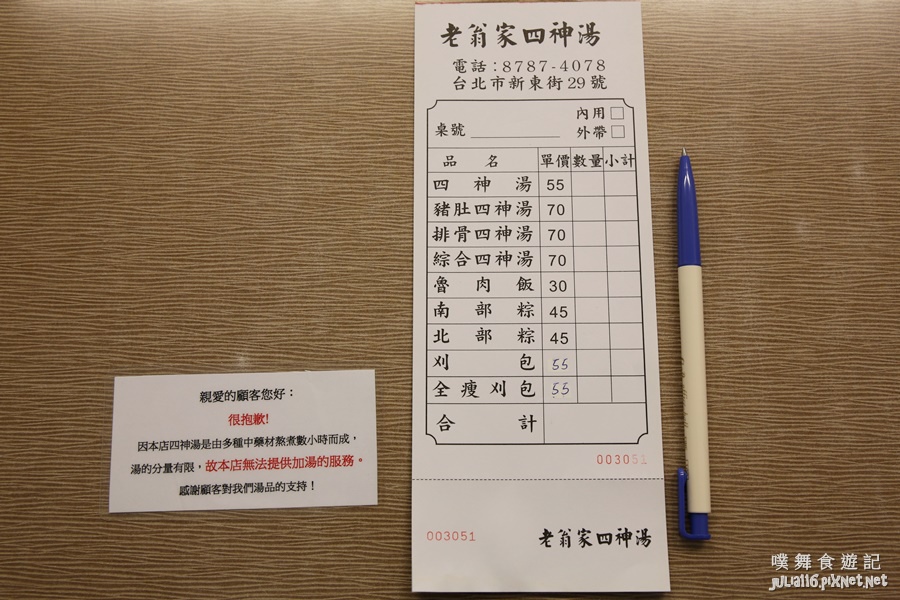 老翁家四神湯
電話：8787-4078
台北市新東街29號
內用□
桌號 外帶□
品名 單價 數量 小計
四神湯 55
豬肚四神湯 70
排骨四神湯 70
綜合四神湯 70
魯肉飯 30
南部粽 45
北部粽 45
刈包 55
全瘦刈包 55
合計
003051
003051 老翁家四神湯
親愛的顧客您好：
很抱歉!
因本店四神湯是由多種中藥材熬煮數小時而成，
湯的分量有限，故本店無法提供加湯的服務。
感謝顧客對我們湯品的支持！
噗舞食遊記
julia116.pixnet.net